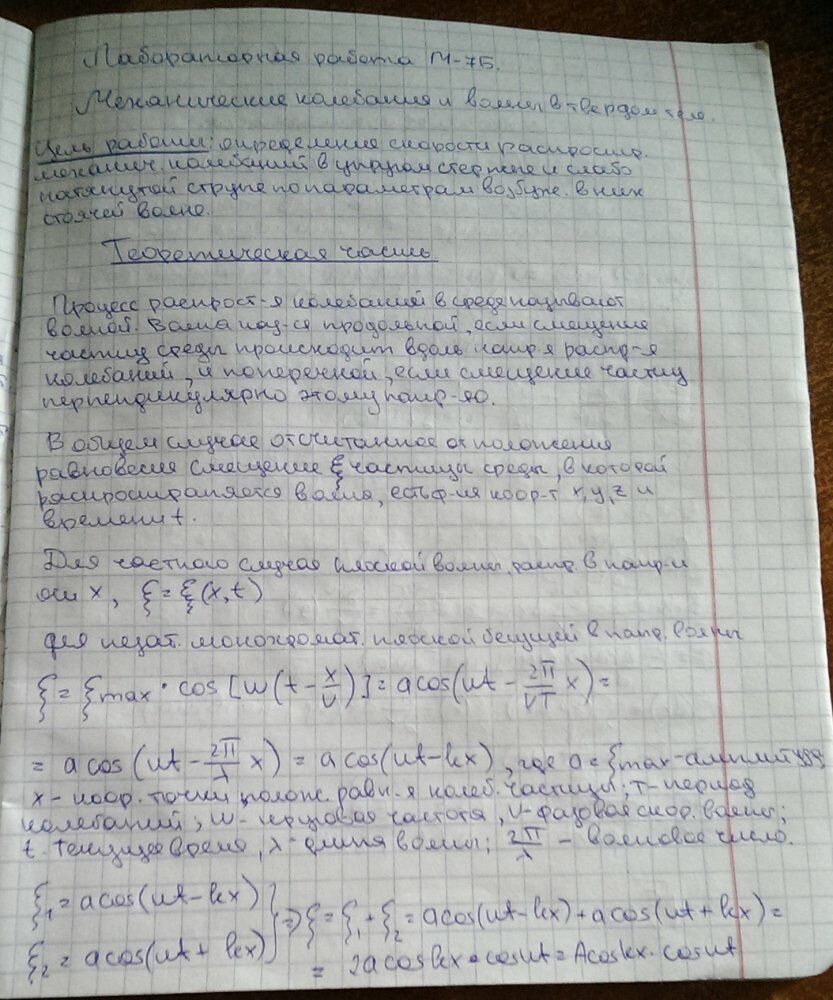 Лабораторная работа М-7Б.
Механические колебания и волны в твердом теле.
Цель работы: определение скорости распростр.
механич. колебаний в упругом стержне и слабо
натянутой струне по параметрам возбужд. в них
стоячей волне.
Теоретическая часть
Процесс распрост-я колебаний в среде называют
волной. Волна наз-ся продольной, если смещение
частиц среды происходит вдоль напр-я распр-я
колебаний, и поперечной, если смещение частиц
перпендикулярно этому напр-ю.
В общем случае отсчитанное от положения
равновесия смещение ξ частицы среды, в которой
распространяется волна, есть ф-ия коор-т x, y, z и
времени t.
Для частного случая плоской волны, распр. в напр-и
оси x, ξ = ξ(x,t)
для незат. монохромат. плоской бегущей в напр. волны
ξ = ξmax · cos [ω(t - x/υ)] = a cos(ωt - 2π/υT x) =
= a cos (ωt - 2π/λ x) = a cos(ωt - kx), где a = ξmax - амплитуда
x - коор. точки полож. равн-я колеб. частицы; T - период
колебаний; ω - круговая частота, υ - фазовая скор. волны;
t - текущее время, λ - длина волны; 2π/λ - волновое число.
ξ1 = a cos(ωt - kx)
ξ2 = a cos(ωt + kx)
} ⇒ ξ = ξ1 + ξ2 = a cos(ωt - kx) + a cos(ωt + kx) =
= 2a cos kx · cos ωt = A cos kx · cos ωt